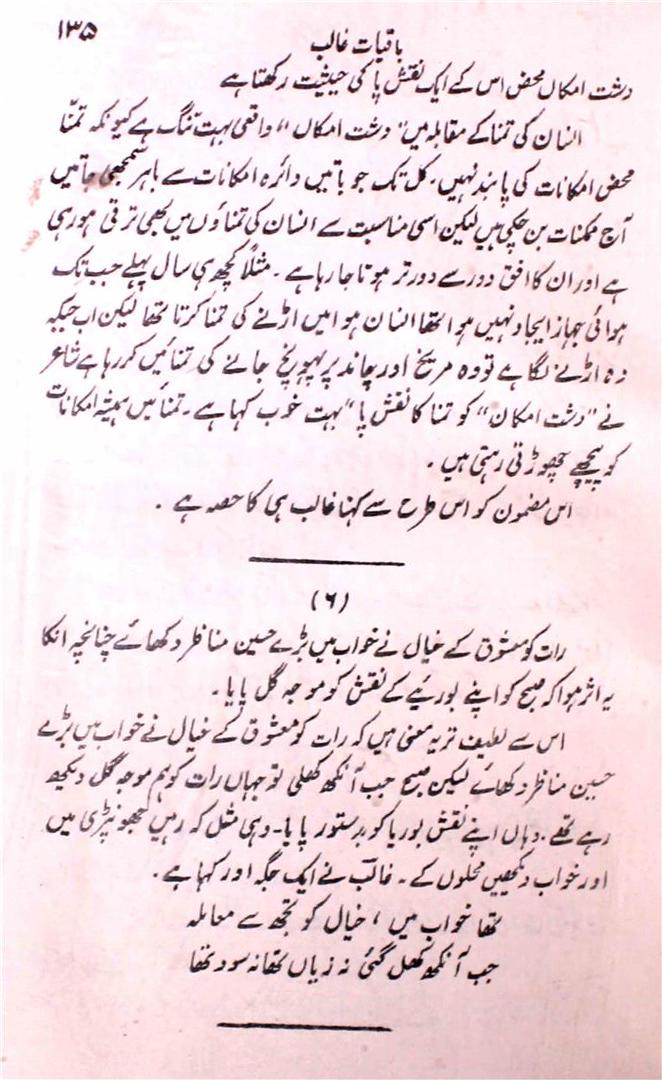 ۱۳۵
باقیات غالب
دشت امکاں محض اس کے ایک نقش پا کی حیثیت رکھتا ہے
انسان کی تمنا کے مقابلہ میں "دشت امکاں" واقعی بہت تنگ ہے کیونکہ تمنّا
محض امکانات کی پابند نہیں۔ کل تک جو باتیں دائرہ امکانات سے باہر سمجھی جاتیں
آج ممکنات بن چکی ہیں لیکن اسی مناسبت سے انسان کی تمناؤں میں بھی ترقی ہو رہی
ہے اور ان کا افق دور سے دور تر ہوتا جا رہا ہے۔ مثلاً کچھ ہی سال پہلے جب تک
ہوائی جہاز ایجاد نہیں ہوا تھا انسان ہوا میں اڑنے کی تمنا کرتا تھا لیکن اب جبکہ
وہ اڑنے لگا ہے تو وہ مریخ اور چاند پر پہونچ جانے کی تمنائیں کر رہا ہے شاعر
نے "دشت امکان" کو تمنا کا نقش پا" بہت خوب کہا ہے۔ تمنائیں ہمیشہ امکانات
کو پیچھے چھوڑتی رہتی ہیں۔
اس مضمون کو اس طرح سے کہنا غالب ہی کا حصہ ہے۔
(۶)
رات کو معشوق کے خیال نے خواب میں بڑے حسین مناظر دکھائے چنانچہ انکا
یہ اثر ہوا کہ صبح کو اپنے بوریئے کے نقش کو موجہ گل پایا۔
اس سے لطیف تر یہ معنی ہیں کہ رات کو معشوق کے خیال نے خواب میں بڑے
حسین مناظر دکھائے لیکن صبح جب آنکھ کھلی تو جہاں رات کو ہم موجہ گل دیکھ
رہے تھے۔ وہاں اپنے نقش بوریا کو بدستور پایا۔ وہی مثل کہ رہیں جھونپڑی میں
اور خواب دیکھیں محلوں کے۔ غالبؔ نے ایک جگہ اور کہا ہے۔
تھا خواب میں، خیال کو تجھ سے معاملہ
جب آنکھ کھل گئی نہ زیاں تھا نہ سود تھا